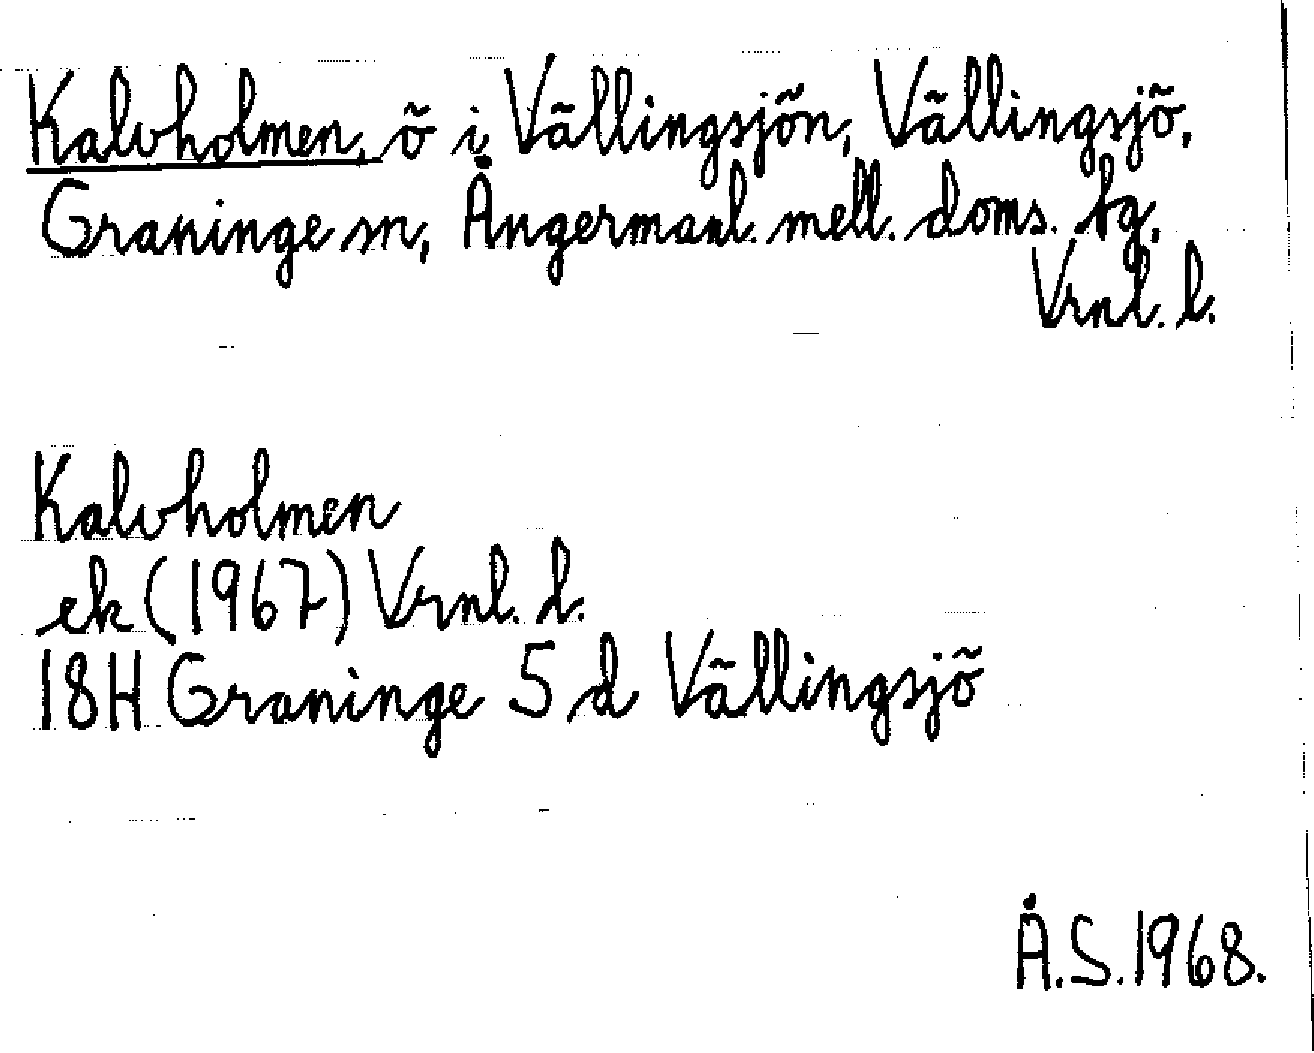 Kalvholmen, ö i Vällingsjön, Vällingsjö,
Graninge sn, Ångermanl. mell. doms. tg,
Vrnl. l.
Kalvholmen
ek (1967) Vrnl. l.
18H Graninge 5 d Vällingsjö
Å.S. 1968.